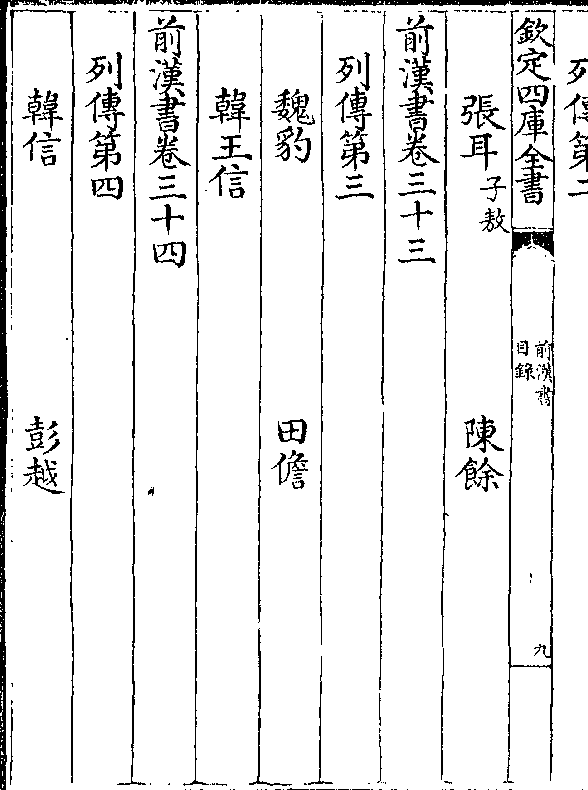 列傳第二
欽定四庫全書
前漢書
目錄
九
張耳 子敖 陳餘
前漢書卷三十三
列傳第三
魏豹 田儋
韓王信
前漢書卷三十四
列傳第四
韓信 彭越